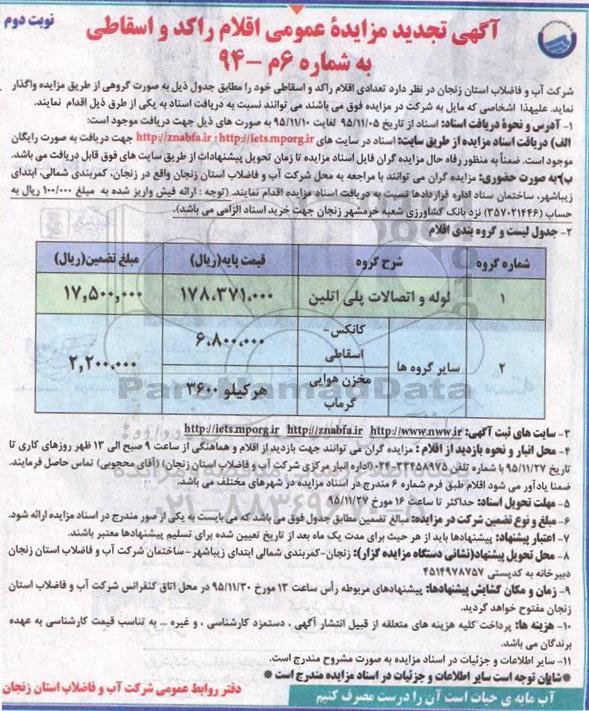 آگهی تجدید مزایدهٔ عمومی اقلام راکد و اسقاطی
به شماره ۶م -۹۴
نوبت دوم
شرکت آب و فاضلاب استان زنجان در نظر دارد تعدادی اقلام راکد و اسقاطی خود را مطابق جدول ذیل به صورت گروهی از طریق مزایده واگذار
نماید. علیهذا اشخاصی که مایل به شرکت در مزایده فوق می باشند می توانند نسبت به دریافت اسناد به یکی از طرق ذیل اقدام نمایند.
۱- آدرس و نحوهٔ دریافت اسناد: اسناد از تاریخ ۹۵/۱۱/۰۵ لغایت ۹۵/۱۱/۱۰ به صورت های ذیل جهت دریافت موجود است:
الف) دریافت اسناد مزایده از طریق سایت: اسناد در سایت های http://iets.mporg.ir : http://znabfa.ir جهت دریافت به صورت رایگان
موجود است. ضمناً به منظور رفاه حال مزایده گران فایل اسناد مزایده تا زمان تحویل پیشنهادات از طریق سایت های فوق قابل دریافت می باشد.
ب) به صورت حضوری: مزایده گران می توانند با مراجعه به محل شرکت آب و فاضلاب استان زنجان واقع در زنجان، کمربندی شمالی، ابتدای
زیباشهر، ساختمان ستاد اداره قراردادها نسبت به دریافت اسناد مزایده اقدام نمایند. (توجه : ارائه فیش واریز شده به مبلغ ۱۰۰/۰۰۰ ریال به
حساب (۳۵۷۰۲۱۴۴۶) نزد بانک کشاورزی شعبه خرمشهر زنجان جهت خرید اسناد الزامی می باشد).
۲- جدول لیست و گروه بندی اقلام
شماره گروه شرح گروه قیمت پایه(ریال) مبلغ تضمین(ریال)
۱ لوله و اتصالات پلی اتلین ۱۷۸،۳۷۱،۰۰۰ ۱۷،۵۰۰،۰۰۰
۲ سایر گروه ها کانکس- اسقاطی ۶،۸۰۰،۰۰۰ ۲،۲۰۰،۰۰۰
مخزن هوایی گرماب هرکیلو ۳۶۰۰
ParsNamadData
۳- سایت های ثبت آگهی: http://www.nww.ir http://znabfa.ir http://iets.mporg.ir
۴- محل انبار و نحوه بازدید از اقلام : مزایده گران می توانند جهت بازدید از اقلام و هماهنگی از ساعت ۹ صبح الی ۱۳ ظهر روزهای کاری تا
تاریخ ۹۵/۱۱/۲۷ با شماره تلفن ۳۳۴۵۸۹۷۵-۰۲۴ (اداره انبار مرکزی شرکت آب و فاضلاب استان زنجان) (آقای محجوبی) تماس حاصل فرمایند.
ضمنا یادآور می شود اقلام طبق فرم شماره ۶ مندرج در اسناد مزایده در شهرهای مختلف می باشد.
۰۲۱-۸۸۳۴۹۶۷۰-۵
۵- مهلت تحویل اسناد: حداکثر تا ساعت ۱۶ مورخ ۹۵/۱۱/۲۷
۶- مبلغ و نوع تضمین شرکت در مزایده: مبالغ تضمین مطابق جدول فوق می باشد که می بایست به یکی از صور مندرج در اسناد مزایده ارائه شود.
۷- اعتبار پیشنهاد: پیشنهادها باید از هر حیث برای مدت یک ماه بعد از تاریخ تعیین شده برای تسلیم پیشنهادها معتبر باشند.
۸- محل تحویل پیشنهاد(نشانی دستگاه مزایده گزار): زنجان-کمربندی شمالی ابتدای زیباشهر-ساختمان شرکت آب و فاضلاب استان زنجان
دبیرخانه به کدپستی ۴۵۱۴۹۷۸۷۵۷
۹- زمان و مکان گشایش پیشنهادها: پیشنهادهای مربوطه رأس ساعت ۱۳ مورخ ۹۵/۱۱/۳۰ در محل اتاق کنفرانس شرکت آب و فاضلاب استان
زنجان مفتوح خواهد گردید.
۱۰- هزینه ها: پرداخت کلیه هزینه های متعلقه از قبیل انتشار آگهی ، دستمزد کارشناسی ، و غیره ... به تناسب قیمت کارشناسی به عهده
برندگان می باشد.
۱۱- سایر اطلاعات و جزئیات در اسناد مزایده به صورت مشروح مندرج است.
*شایان توجه است سایر اطلاعات و جزئیات در اسناد مزایده مندرج است *
دفتر روابط عمومی شرکت آب و فاضلاب استان زنجان
آب مایه ی حیات است آن را درست مصرف کنیم